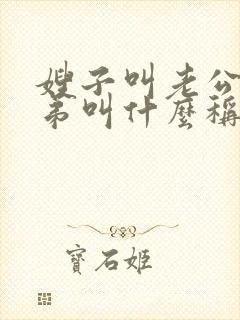 嫂子叫老公
弟叫什麼稱
寶石姬